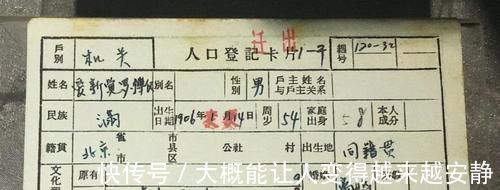 迁出
戶別 机关 人口登記卡片 1-平 編号 120-32
姓名 爱新觉罗溥仪 別名 性別 男 戶主姓名与戶主关系
民族 滿 出生日期 1906年 月14日 周岁 54 家庭出身 本人成分
籍貫 北京 省市 市县区 公社 村 出生地 同籍贯
文化 原有
快传号 / 大概能让人变得越来越安静